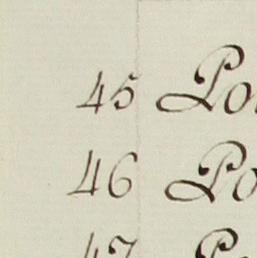 45 Po
46 Po
47 P